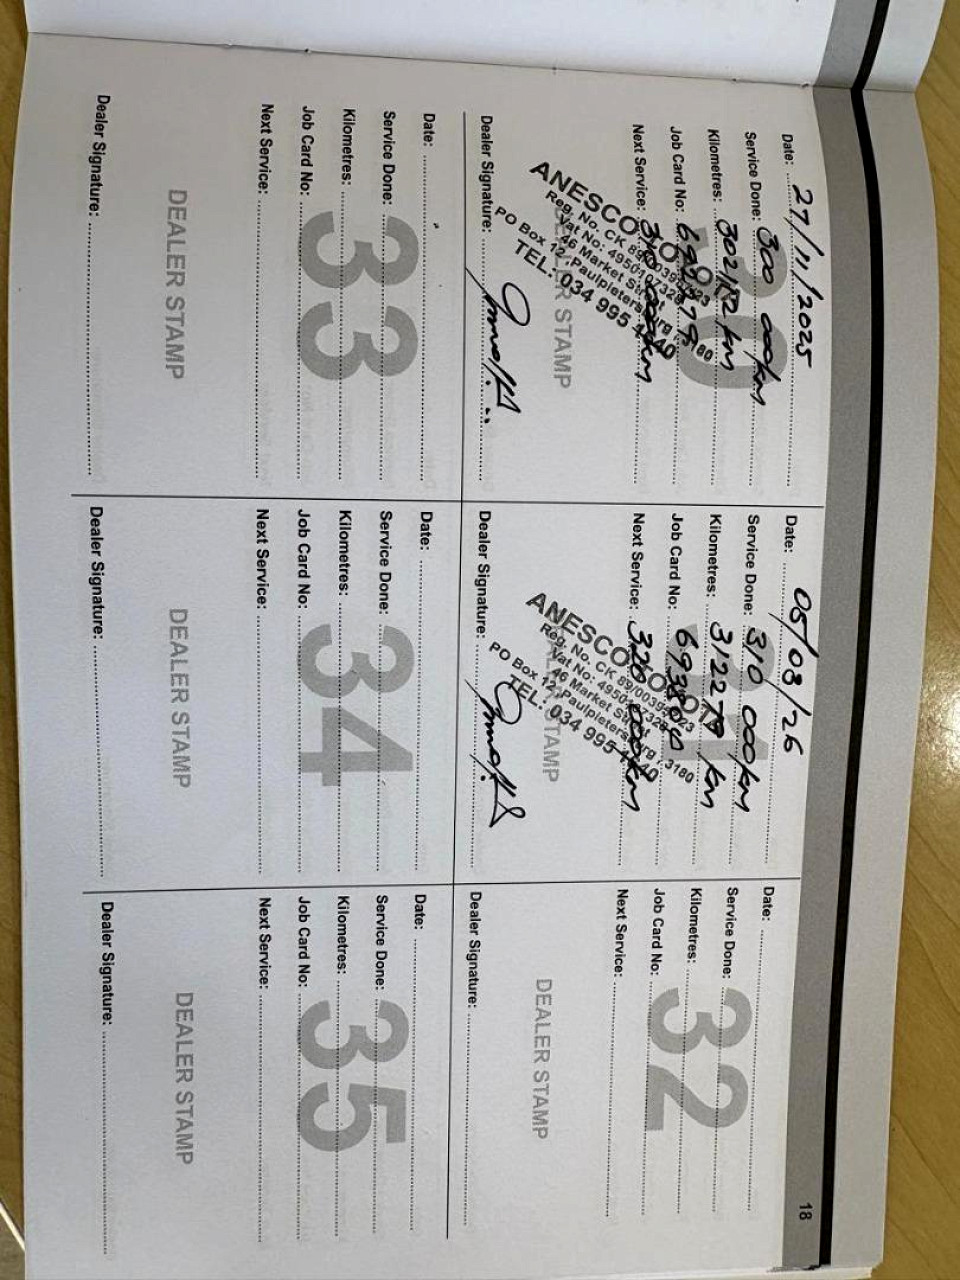 18
Date: 27/11/2025
Service Done: 300 000km
Kilometres: 302172 km
Job Card No:
Next Service: 310 000km
ANESCO TOYOTA
Reg. No. CK 89/00395/23
Vat No: 4950107328
46 Market Street
PO Box 12, Paulpietersburg, 3180
TEL: 034 995 1440
DEALER STAMP
Dealer Signature:
Date: 05/03/26
Service Done: 310 000km
Kilometres: 312279 km
Job Card No:
Next Service: 320 000km
ANESCO TOYOTA
Reg. No. CK 89/00395/23
Vat No: 4950107328
46 Market Street
PO Box 12, Paulpietersburg, 3180
TEL: 034 995 1440
DEALER STAMP
Dealer Signature:
32
Date:
Service Done:
Kilometres:
Job Card No:
Next Service:
DEALER STAMP
Dealer Signature:
33
Date:
Service Done:
Kilometres:
Job Card No:
Next Service:
DEALER STAMP
Dealer Signature:
34
Date:
Service Done:
Kilometres:
Job Card No:
Next Service:
DEALER STAMP
Dealer Signature:
35
Date:
Service Done:
Kilometres:
Job Card No:
Next Service:
DEALER STAMP
Dealer Signature: